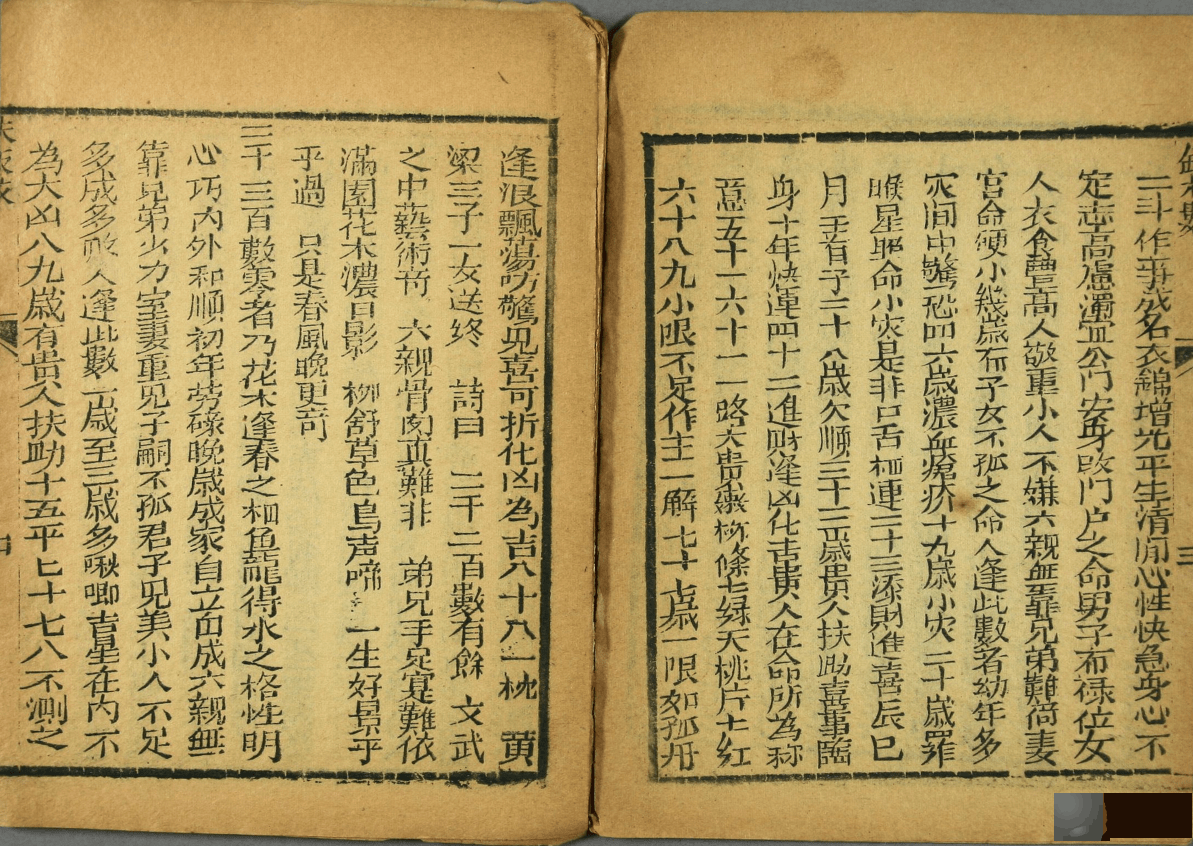 二斗作事成名衣錦增光平生清閒心性快急身心不
定志高慮濁宜公門安身改門户之命男子布禄位女
人衣食豊高人敬重小人不嫌六親無靠兄弟難倚妻
宮命硬小幾歲有子女不孤之命人逢此數者幼年多
灾间中驚恐四六歲濃血瘡疥十九歲小灾二十歲罪
喉星照命小灾是非口舌相連二十三添財進喜辰巳
月主首子二十八歲欠順三十二五歲貴人扶助喜事臨
身十年快連四十二進財逢凶化吉貴人在命所為称
意五十一六十一路大貴嫩柳條七绿天桃片七紅
六十八九小限不足作主二解七十七歲一限如孤舟
逢浪飄蕩訪驚見喜可折化凶為吉八十八一枕黄
梁三子一女送終 詩曰 二千二百數有餘 文武
之中藝術竒 六親骨肉真難非 弟兄手足寔難依
滿園花木濃日影 柳舒草色鳥声啼 一生好景乎
乎過 只是春風晚更竒
二千三百數零者乃花木逢春之相魚龍得水之格性明
心巧内外和順初年劳碌晚歲成家自立而成六親無
靠兄弟少力室妻重見子嗣不孤君子見美小人不足
多成多敗人逢此數一歲至三歲多啾唧吉星在内不
為大凶八九歲有貴人扶助十五平七十七八不測之